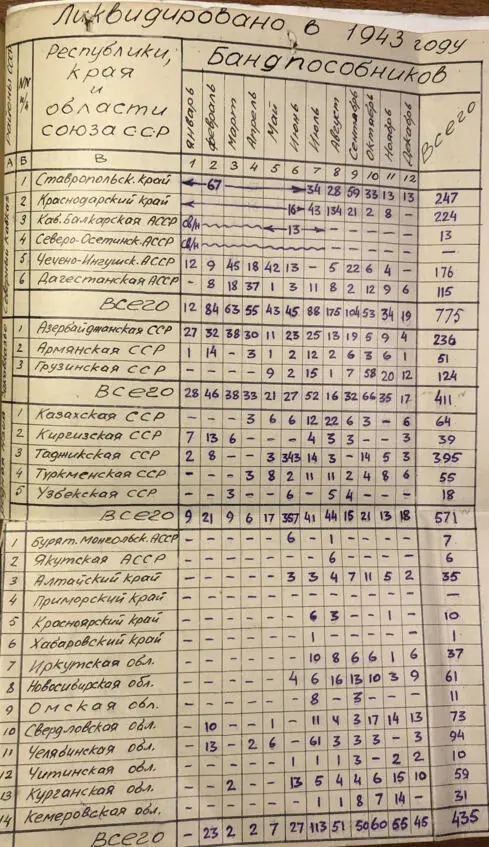 Ликвидировано в 1943 году
Районы СССР
NN п/п
Республики, края и области союза ССР
Бандпособников
Январь Февраль Март Апрель Май Июнь Июль Август Сентябрь Октябрь Ноябрь Декабрь Всего
А Б В 1 2 3 4 5 6 7 8 9 10 11 12
Северный Кавказ
1 Ставропольск. край 67 34 28 59 33 13 13 247
2 Краснодарский край 16 43 134 21 2 8 - 224
3 Каб. Балкарская АССР св/н 13 13
4 Северо-Осетинск. АССР св/н —
5 Чечено-Ингушск. АССР 12 9 45 18 42 13 - 5 22 6 4 - 176
6 Дагестанская АССР - 8 18 37 1 3 11 8 2 12 9 6 115
Всего 12 84 63 55 43 45 88 175 104 53 34 19 775
1 Азербайджанская ССР 27 32 38 30 11 23 25 13 19 5 9 4 236
2 Армянская ССР 1 14 - 3 1 2 12 2 6 3 6 1 51
3 Грузинская ССР 9 2 15 1 7 58 20 12 124
Всего 28 46 38 33 21 27 52 16 32 66 35 17 411
1 Казахская ССР - - - 3 6 6 12 22 6 3 - 6 64
2 Киргизская ССР 7 13 6 - - - 4 3 3 - - 3 39
3 Таджикская ССР 2 8 - - 3 343 14 3 - 14 5 3 395
4 Туркменская ССР - - - 3 8 2 11 11 2 4 8 6 55
5 Узбекская ССР - - 3 - - 6 - 5 4 - - - 18
Всего 9 21 9 6 17 357 41 44 15 21 13 18 571
1 Бурят. Монгольск. АССР - - - - - 6 - 1 - - - - 7
2 Якутская АССР - - - - - - - 6 - - - - 6
3 Алтайский край - - - - - 3 3 4 7 11 5 2 35
4 Приморский край - - - - - - - - - - - - —
5 Красноярский край - - - - - - 6 3 - - 1 - 10
6 Хабаровский край - - - - - - 1 - - - - - 1
7 Иркутская обл. - - - - - - 10 8 6 6 1 6 37
8 Новосибирская обл. - - - - - 4 6 16 13 10 3 9 61
9 Омская обл. - - - - - - 8 - 3 - - - 11
10 Свердловская обл. - 10 - - 1 - 11 4 3 17 14 13 73
11 Челябинская обл. - 13 - 2 6 - 61 3 3 3 - 3 94
12 Читинская обл. - - - - - 1 1 1 3 - 2 2 10
13 Курганская обл. - - 2 - - 13 5 4 4 6 15 10 59
14 Кемеровская обл. - - - - - - 1 1 8 7 14 - 31
Всего - 23 2 2 7 27 113 51 50 60 55 45 435